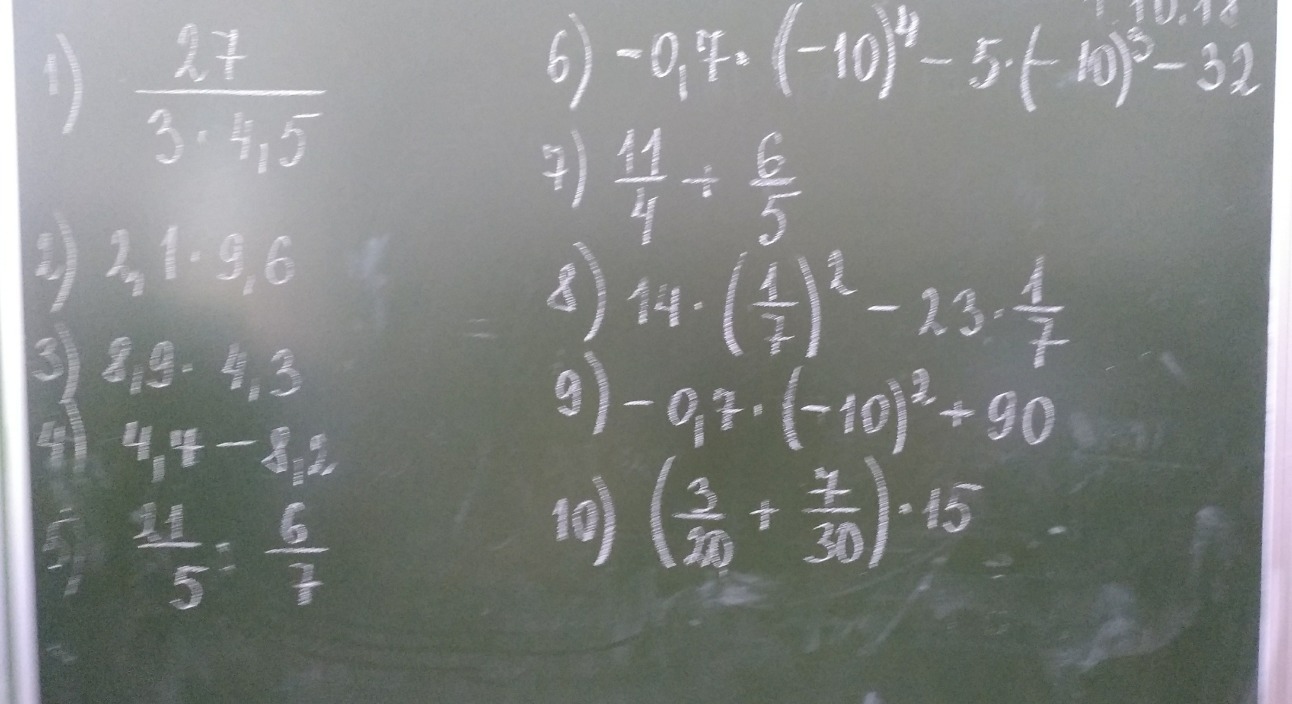 1) 27 / 3 · 4,5
2) 2,1 · 9,6
3) 8,9 · 4,3
4) 4,7 - 8,2
5) 21/5 : 6/7
6) -0,7 · (-10)⁴ - 5 · (-10)³ - 32
7) 11/4 + 6/5
8) 14 · (1/7)² - 23 · 1/7
9) -0,7 · (-10)² + 90
10) (3/20 + 7/30) · 15